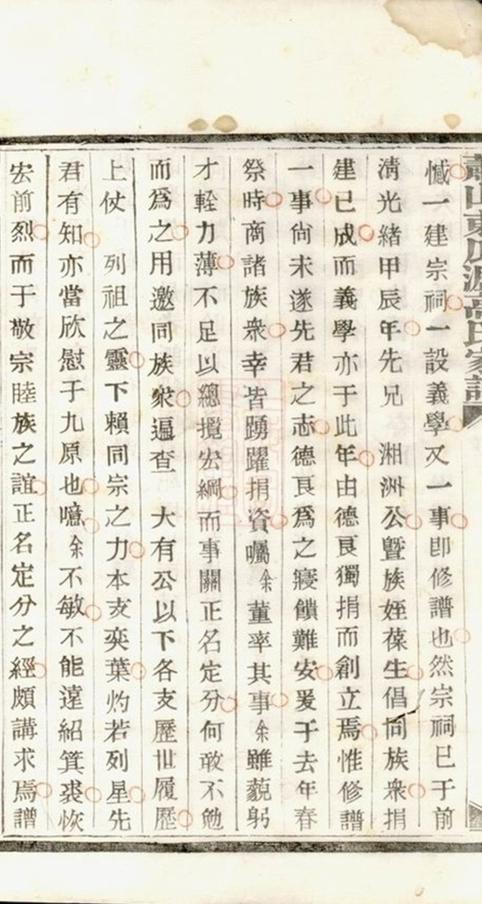 憾一建宗祠一設義學又一事即修譜也然宗祠已于前
清光緒甲辰年先兄 湘洲公暨族姪葆生倡同族衆捐
建已成而義學亦于此年由德良獨捐而創立焉惟修譜
一事尙未遂先君之志德良爲之寢饋難安爰于去年春
祭時商諸族衆幸皆踴躍捐資囑余董率其事余雖藐躬
才輕力薄不足以總攬宏綱而事關正名定分何敢不勉
而爲之用邀同族衆逼查 大有公以下各支歷世履歷
上仗 列祖之靈下賴同宗之力本支奕葉灼若列星先
君有知亦當欣慰于九原也噫余不敏不能遠紹箕裘恢
宏前烈而于敬宗睦族之誼正名定分之經頗講求焉譜